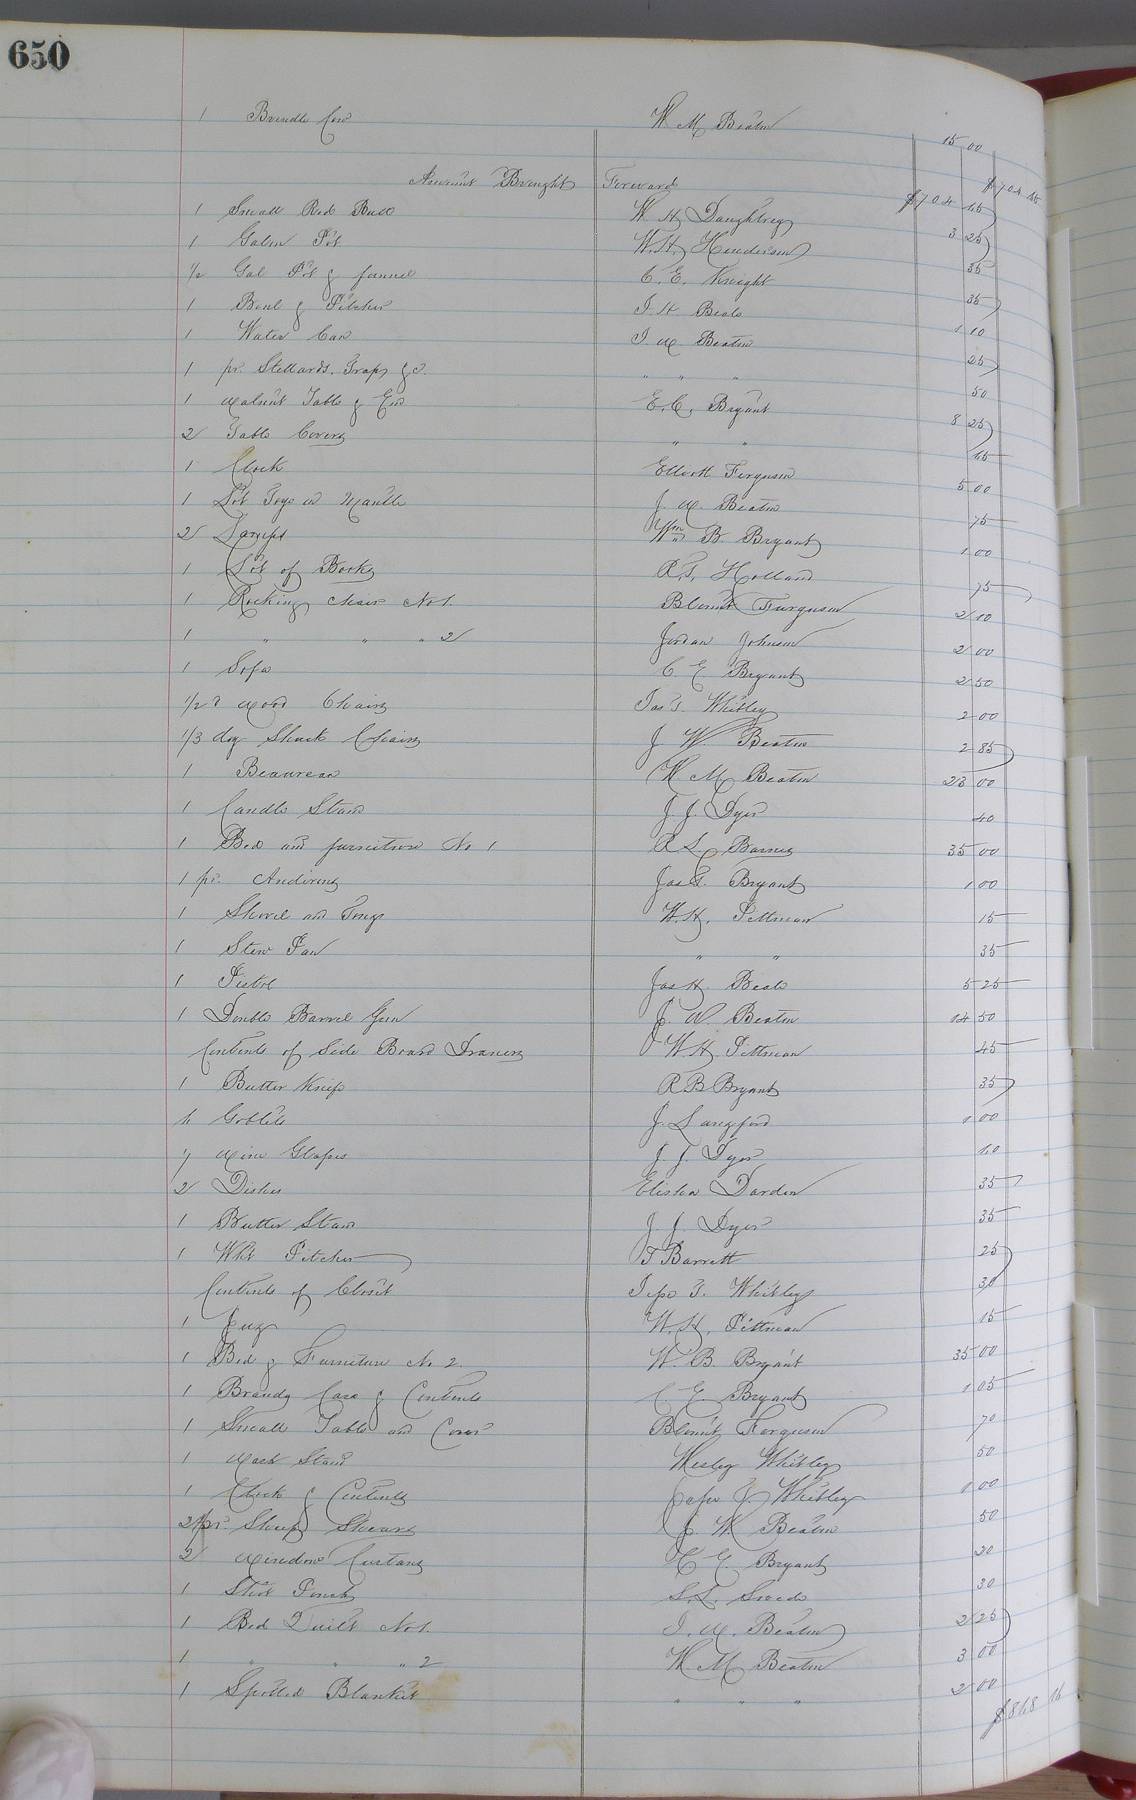 650
1 Brindle Cow W M Beaton 15 00
Amount Brought Forward $704 65 $704 65
1 Small Red Bull W. H. Daughtrey 3 25
1 Galon Pot W. H. Henderson 35
1/2 Gal Pot & funnel C. E. Knight 35
1 Bowl & Pitcher J. H. Beale 1 10
1 Water Can J. W. Beaton 25
1 pr. Stellards, Traps &c. " " " 50
1 Walnut Table & End E. C. Bryant 8 25
2 Table Covers " " 65
1 Clock Ellvett Ferguson 5 00
1 Lot Toys on Mantle J. W. Beaton 75
2 Lamps Wm B Bryant 1 00
1 Lot of Books R. T. Holland 75
1 Rocking Chair No 1. Blount Ferguson 2 10
1 " " " 2 Jordan Johnson 2 00
1 Sofa C E Bryant 2 50
1/2 d Wood Chairs Jas T. Whitley 2 00
1/3 doz Shuck Chairs J W Beaton 2 85
1 Beaureau W M Beaton 23 00
1 Candle Stand J. J. Dyer 40
1 Bed and furniture No 1 R L Barnes 35 00
1 pr. Andirons Jas T. Bryant 1 00
1 Shovel and Tongs W. H. Pittman 15
1 Stew Pan " " 35
1 Pistol Jas H. Beale 5 25
1 Double Barrel Gun J. W. Beaton 14 50
Contents of Side Board Drawers W H Pittman 45
1 Butter Knife R B Bryant 35
6 Goblets J. Langford 1 00
7 Wine Glasses J. J. Dyer 60
2 Dishes Elisha Darden 35
1 Butter Stand J. J. Dyer 35
1 Wht Pitcher T Barrett 25
Contents of Closet Jesse T. Whitley 30
1 Jug W. H. Pittman 15
1 Bed & Furniture No 2. W. B. Bryant 35 00
1 Brandy Case & Contents C E Bryant 1 05
1 Small Table and Cover Blount Ferguson 70
1 Wash Stand Wesley Whitley 50
1 & Contents Jesse J. Whitley 1 00
2 pr. Sheep Shears J. W Beaton 50
2 Window Curtans C E. Bryant 20
1 Shot Pouch S. L. 30
1 Bed Quilt No 1. J. W. Beaton 2 25
1 " " " 2 W M Beaton 3 00
1 Spotted Blanket " " " 2 00
$868 16